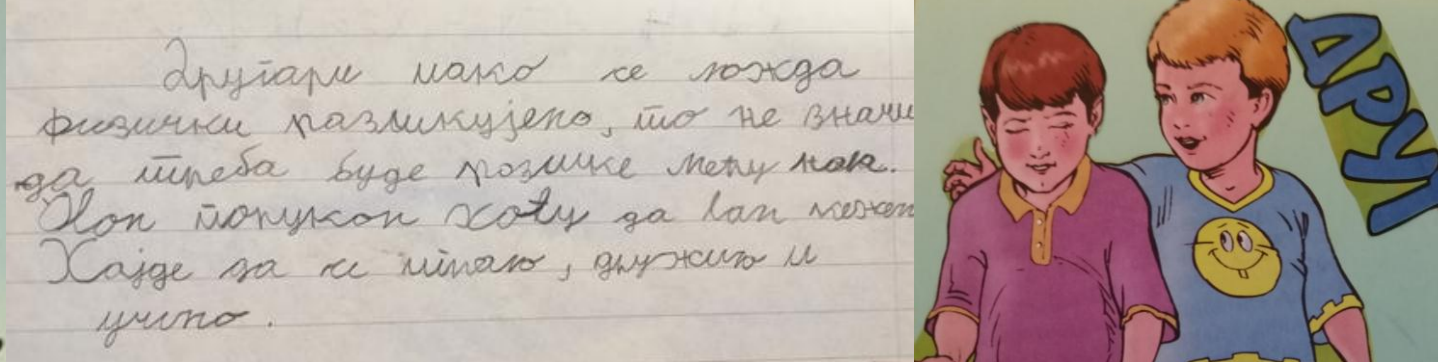 Другари иако се можда
физички разликујемо, то не значи
да треба буде розлике међу нам.
Овом поруком хоћу да вам кажем
Хајде да се играмо, дружимо и
учимо.
ДРУГ